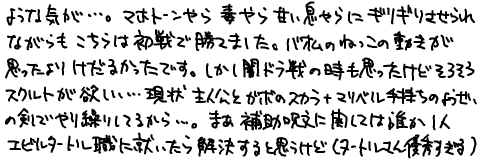 ような気が…。マホトーンやら毒やら甘い息やらにギリギリさせられ
ながらもこちらは初戦で勝てました。バオムのねっこの動きが
思ったよりけだるかったです。しかし闇ドラ戦の時も思ったけどそろそろ
スクルトが欲しい…現状主人公とガボのスカラ+マリベル手持ちのようせい
の剣でやり繰りしてるから…。まあ補助呪文に関しては誰か1人
エビルタートル職に就いたら解決すると思うけど(タートルさん優秀すぎる)